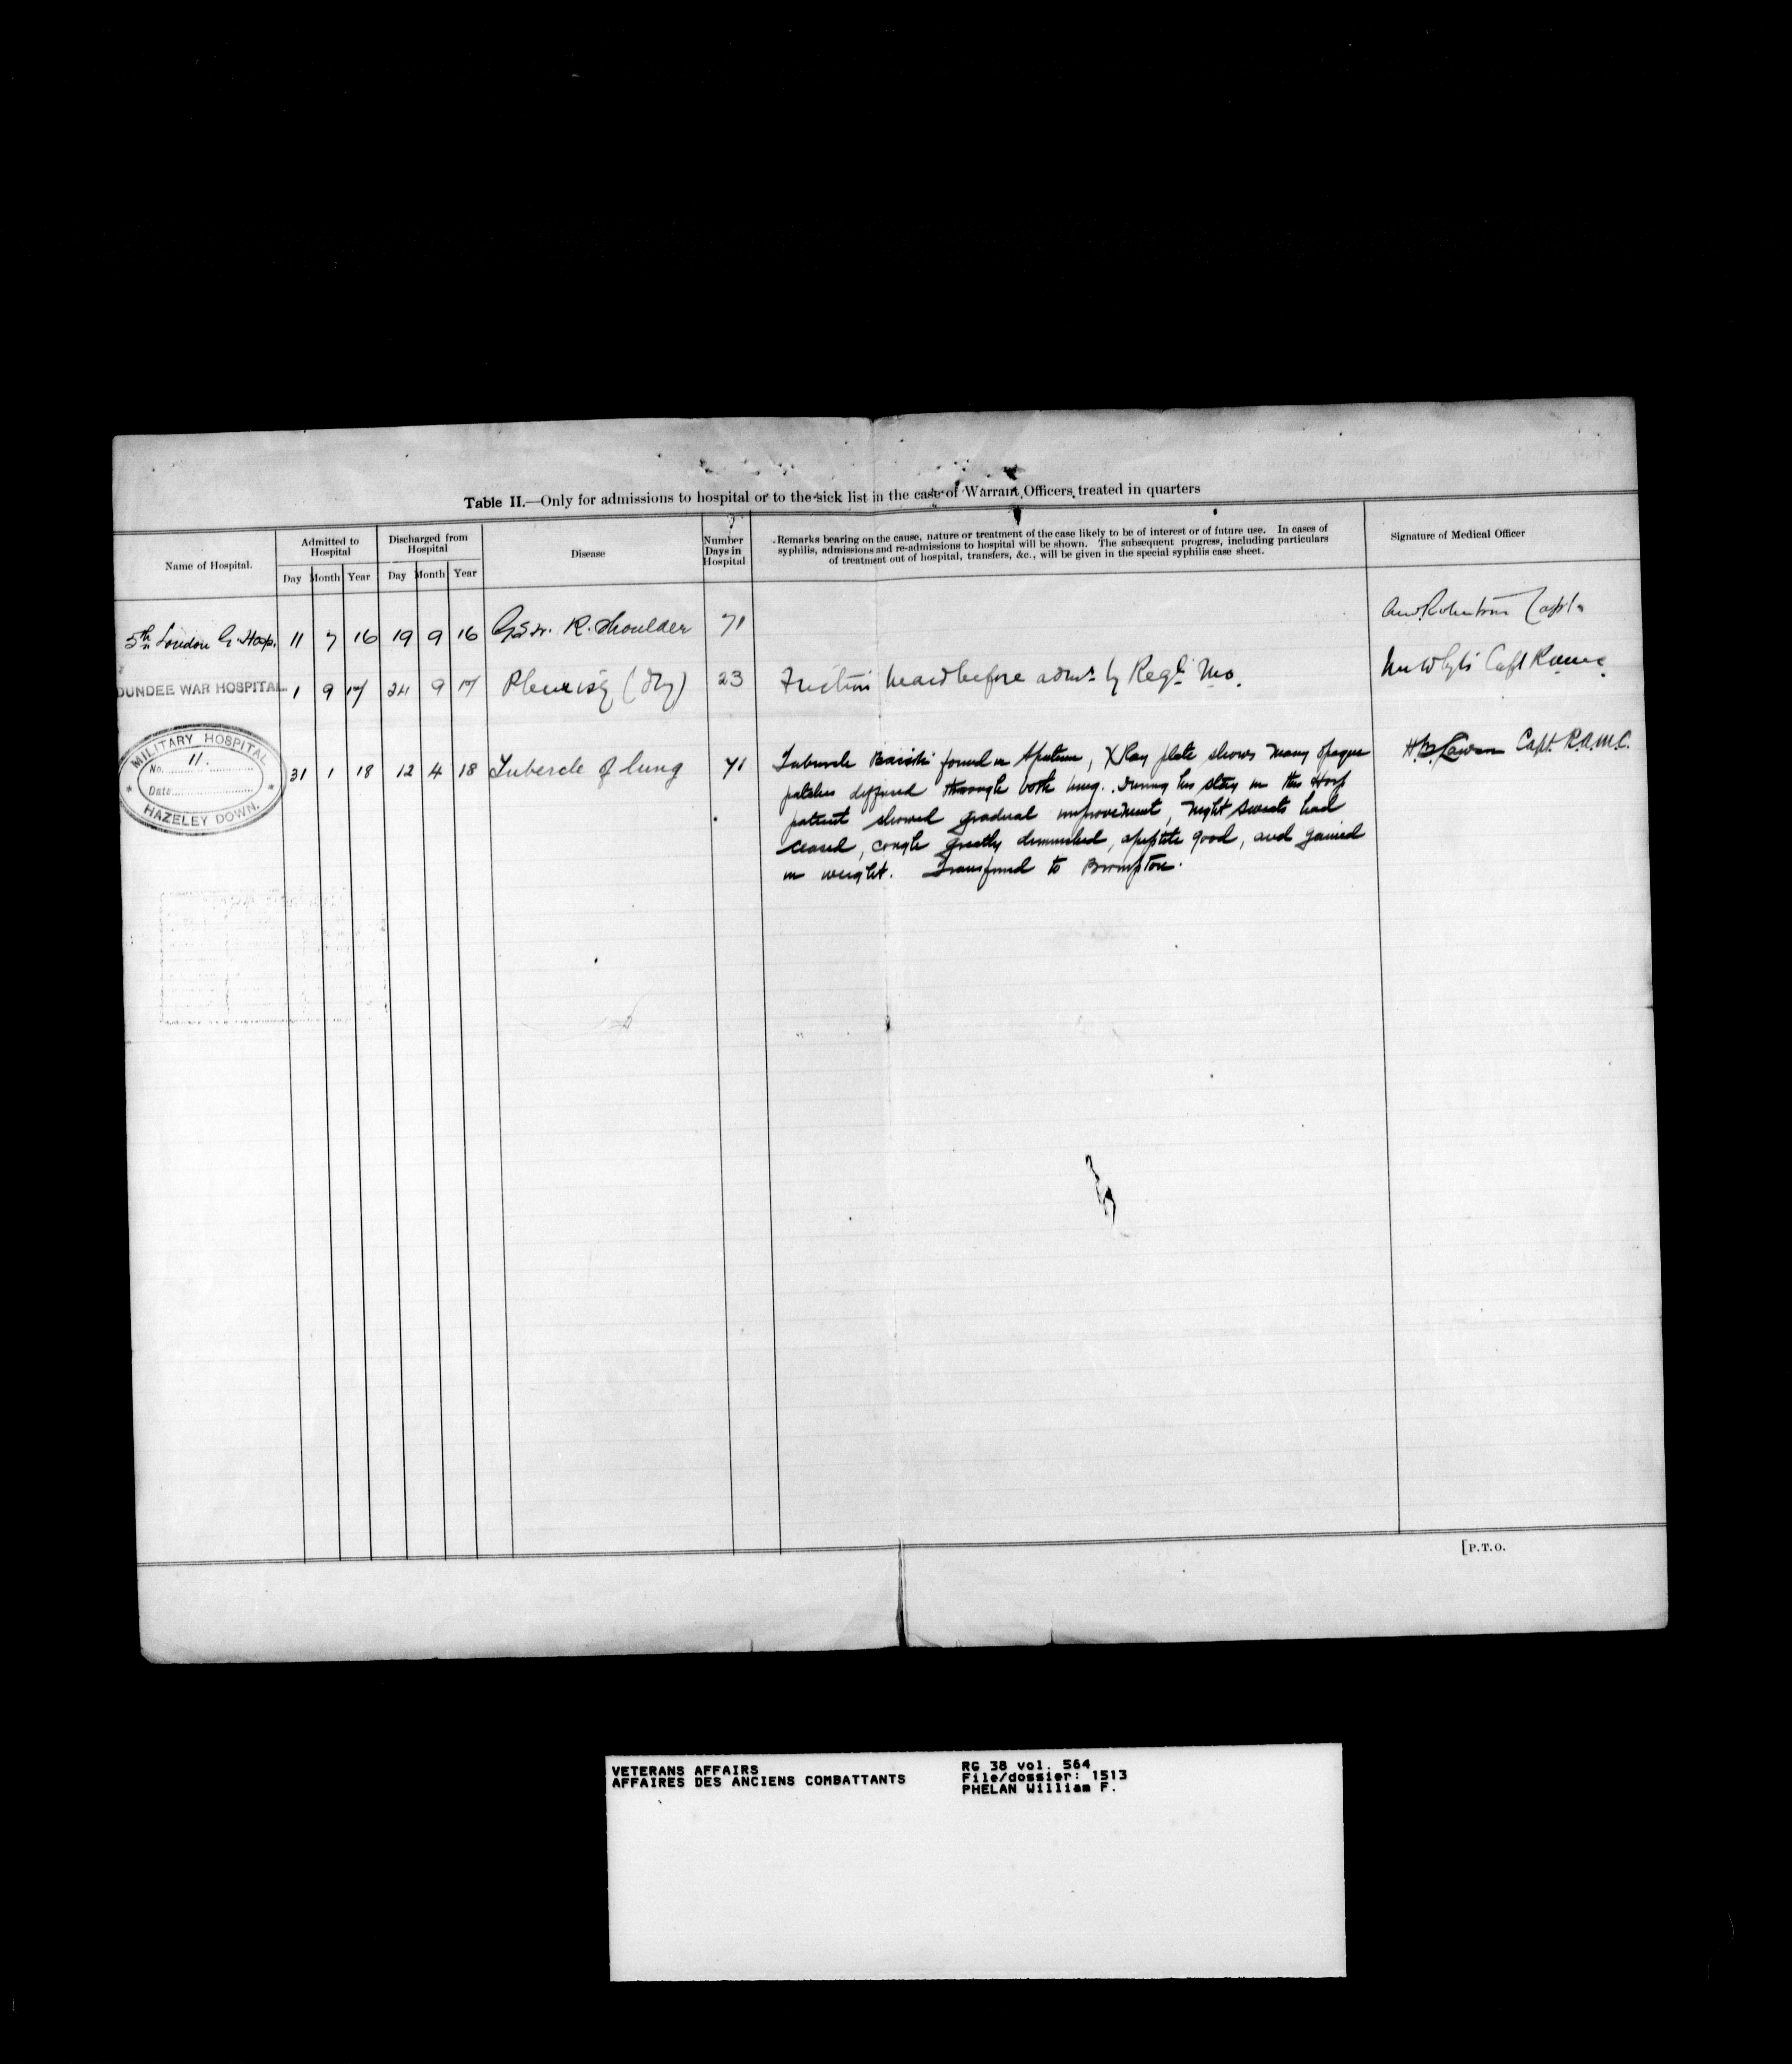 Table II.—Only for admissions to hospital or to the sick list in the case of Warrant Officers treated in quarters
Name of Hospital.
Admitted to
Hospital
Day Month Year
Discharged from
Hospital
Day Month Year
Disease
Number
Days in
Hospital
Remarks bearing on the cause, nature or treatment of the case likely to be of interest or of future use. In cases of
syphilis, admissions and re-admissions to hospital will be shown. The subsequent progress, including particulars
of treatment out of hospital, transfers, &c., will be given in the special syphilis case sheet.
Signature of Medical Officer
5th London G. Hosp. 11 7 16 19 9 16 G.S.W. R. Shoulder 71 Capt.
DUNDEE WAR HOSPITAL 1 9 17 24 9 17 Pleurisy (dry) 23 Friction heard before admn. by Regtl. M.O. Capt R.A.M.C.
MILITARY HOSPITAL
No. 11.
Date
HAZELEY DOWN.
31 1 18 12 4 18 Tubercle of lung 71 Tubercle Bacilli found in Sputum, X Ray plate shows many opaque
patches diffused through both lung. During his stay in this Hosp
patient showed gradual improvement, night sweats had
ceased, cough greatly diminished, appetite good, and gained
in weight. Transferred to Brompton.
Capt. R.A.M.C.
[P.T.O.
VETERANS AFFAIRS
AFFAIRES DES ANCIENS COMBATTANTS
RG 38 vol. 564
File/dossier: 1513
PHELAN William F.